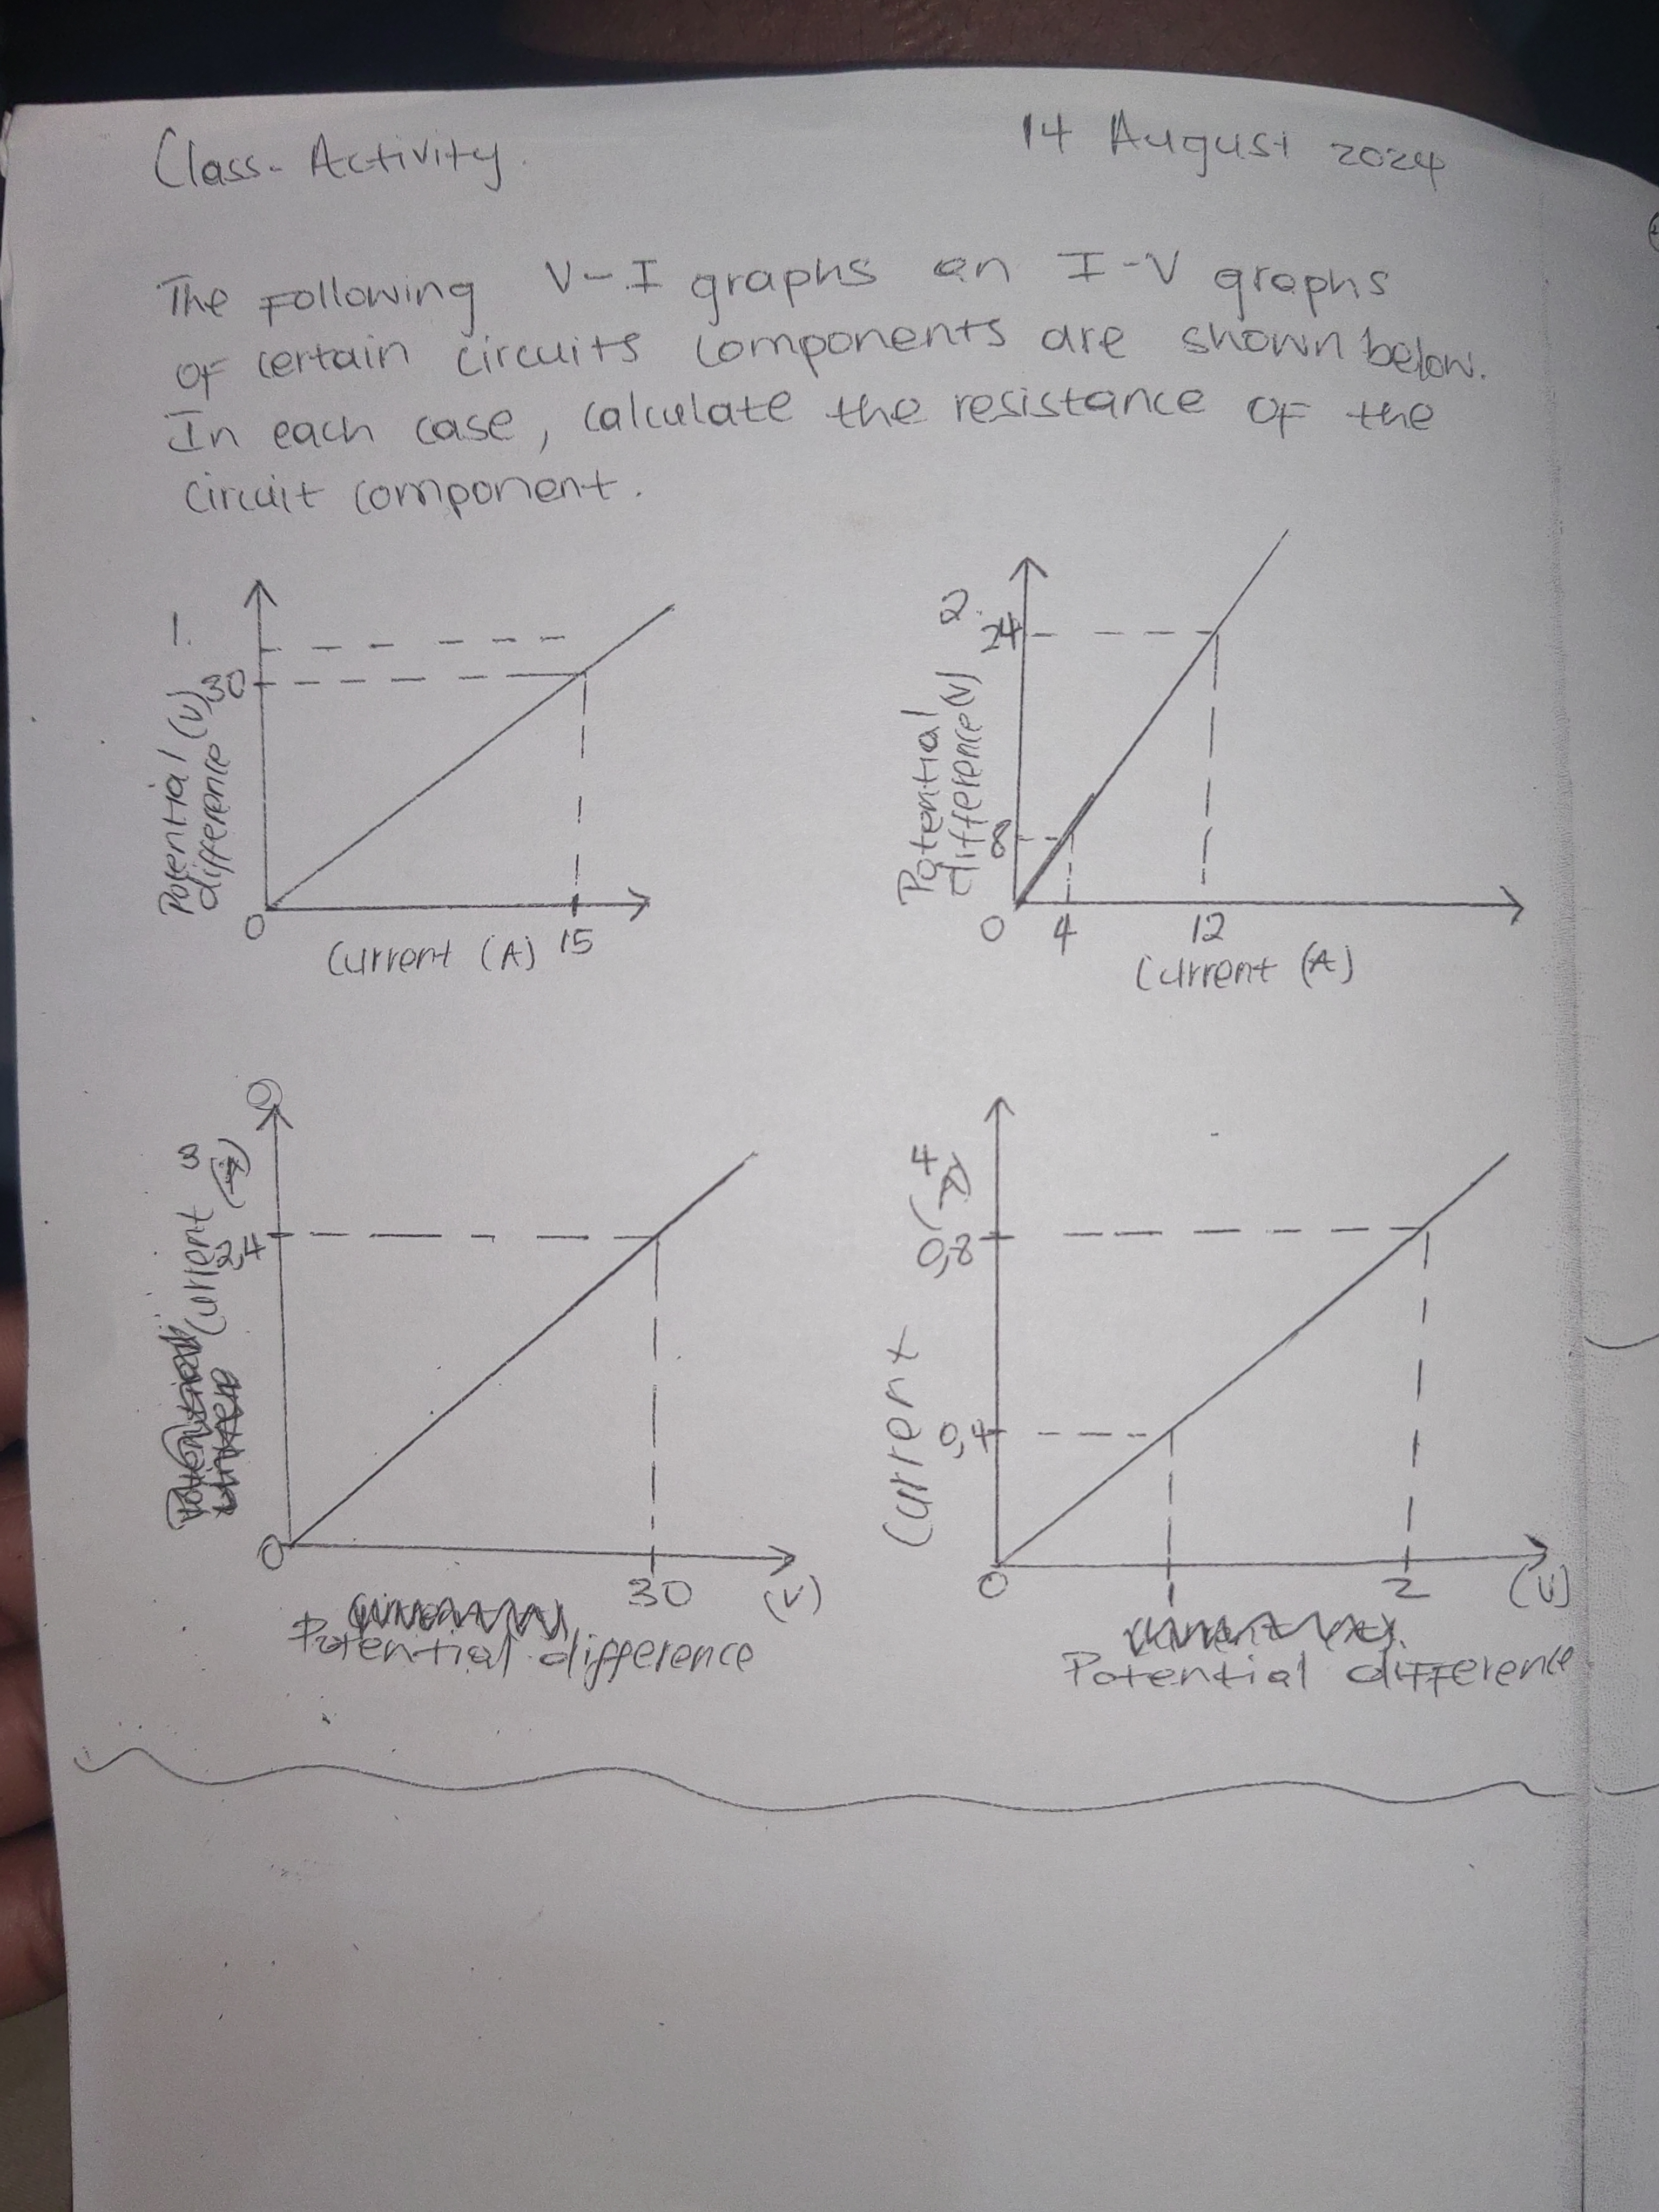 Class-Activity.
14 August 2024
The Following V-I graphs an I-V graphs
of certain circuits components are shown below.
In each case, calculate the resistance of the
circuit component.
1.
30
Potential (V)
difference
0
Current (A) 15
2.
24
Potential
difference (V)
8
0 4 12
Current (A)
3
Current (A)
2,4
0
30 (V)
Potential difference
4
(A)
0,8
Current
0,4
0 1 2 (V)
Potential difference